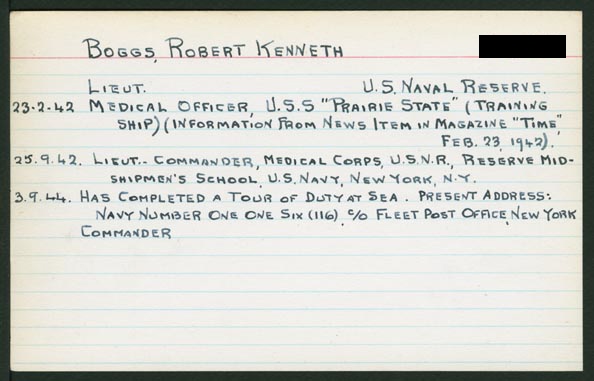 BOGGS, ROBERT KENNETH
LIEUT. U.S. NAVAL RESERVE.
23-2-42 MEDICAL OFFICER, U.S.S "PRAIRIE STATE" (TRAINING
SHIP) (INFORMATION FROM NEWS ITEM IN MAGAZINE "TIME",
FEB. 23, 1942).
25.9.42. LIEUT.- COMMANDER, MEDICAL CORPS, U.S.N.R., RESERVE MID-
SHIPMEN'S SCHOOL, U.S. NAVY, NEW YORK, N.Y.
3.9.44. HAS COMPLETED A TOUR OF DUTY AT SEA. PRESENT ADDRESS:
NAVY NUMBER ONE ONE SIX (116) C/O FLEET POST OFFICE, NEW YORK
COMMANDER